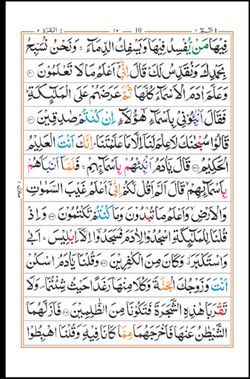 فِيهَا مَنْ يُّفْسِدُ فِيهَا وَيَسْفِكُ الدِّمَآءَ ۚ وَنَحْنُ نُسَبِّحُ
بِحَمْدِكَ وَنُقَدِّسُ لَكَ ؕ قَالَ اِنِّىْٓ اَعْلَمُ مَا لَا تَعْلَمُوْنَ
وَعَلَّمَ اٰدَمَ الْاَسْمَآءَ كُلَّهَا ثُمَّ عَرَضَهُمْ عَلَى الْمَلٰٓئِكَةِ
فَقَالَ اَنْۢبِـُٔوْنِىْ بِاَسْمَآءِ هٰٓؤُلَآءِ اِنْ كُنْتُمْ صٰدِقِيْنَ
قَالُوْا سُبْحٰنَكَ لَا عِلْمَ لَنَآ اِلَّا مَا عَلَّمْتَنَا ؕ اِنَّكَ اَنْتَ الْعَلِيْمُ
الْحَكِيْمُ قَالَ يٰٓاٰدَمُ اَنْۢبِئْهُمْ بِاَسْمَآئِهِمْ ۚ فَلَمَّآ اَنْۢبَاَهُمْ
بِاَسْمَآئِهِمْ ۙ قَالَ اَلَمْ اَقُلْ لَّكُمْ اِنِّىْٓ اَعْلَمُ غَيْبَ السَّمٰوٰتِ
وَالْاَرْضِ ۙ وَاَعْلَمُ مَا تُبْدُوْنَ وَمَا كُنْتُمْ تَكْتُمُوْنَ وَاِذْ
قُلْنَا لِلْمَلٰٓئِكَةِ اسْجُدُوْا لِاٰدَمَ فَسَجَدُوْٓا اِلَّآ اِبْلِيْسَ ؕ اَبٰى
وَاسْتَكْبَرَ ۫ وَكَانَ مِنَ الْكٰفِرِيْنَ وَقُلْنَا يٰٓاٰدَمُ اسْكُنْ
اَنْتَ وَزَوْجُكَ الْجَنَّةَ وَكُلَا مِنْهَا رَغَدًا حَيْثُ شِئْتُمَا ۪ وَلَا
تَقْرَبَا هٰذِهِ الشَّجَرَةَ فَتَكُوْنَا مِنَ الظّٰلِمِيْنَ فَاَزَلَّهُمَا
الشَّيْطٰنُ عَنْهَا فَاَخْرَجَهُمَا مِمَّا كَانَا فِيْهِ ۪ وَقُلْنَا اهْبِطُوْا